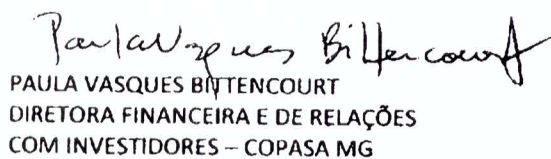 Paula Vasques Bittencourt
PAULA VASQUES BITTENCOURT
DIRETORA FINANCEIRA E DE RELAÇÕES
COM INVESTIDORES – COPASA MG